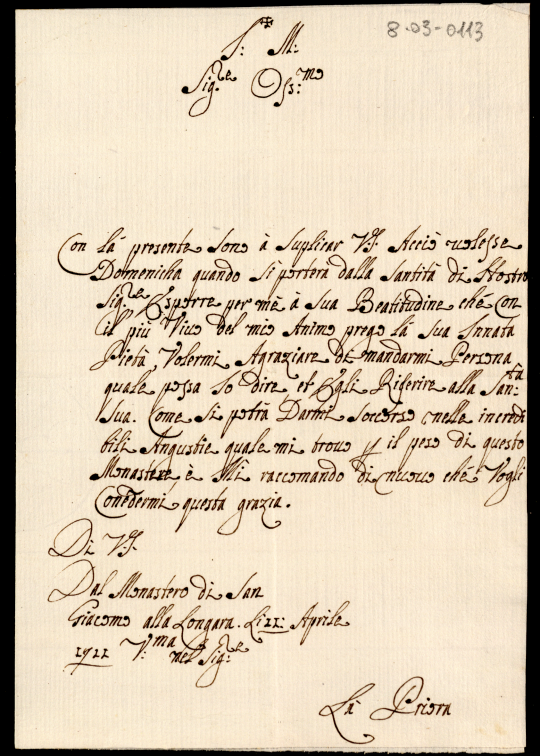 8-03-0113
S: M:
Sig.re Oss:mo
Con là presente sono à suplicar V.S. Acciò uolesse
Domenicha quando si porterà dalla Santità di Nostro
Sig.re Esporre per mè à Sua Beatitudine ché con
il più Viuo del mio Animo prego là Sua Innata
Pietà, Volermi Agraziare di mandarmi Persona
quale possa Io dire, et Egli Riferire alla San:tà
Sua. Come si potrà Darmi soccorso nelle incredi
bili Angustie quale mi trouo p il peso di questo
Monastero è Mi raccomando di nuouo ché Vogli
Conedermi questa grazia.
Di V.S.
Dal Monastero di San
Giacomo alla Longara. Li 22: Aprile
1722 V:ma nel Sig:re
Là Priora